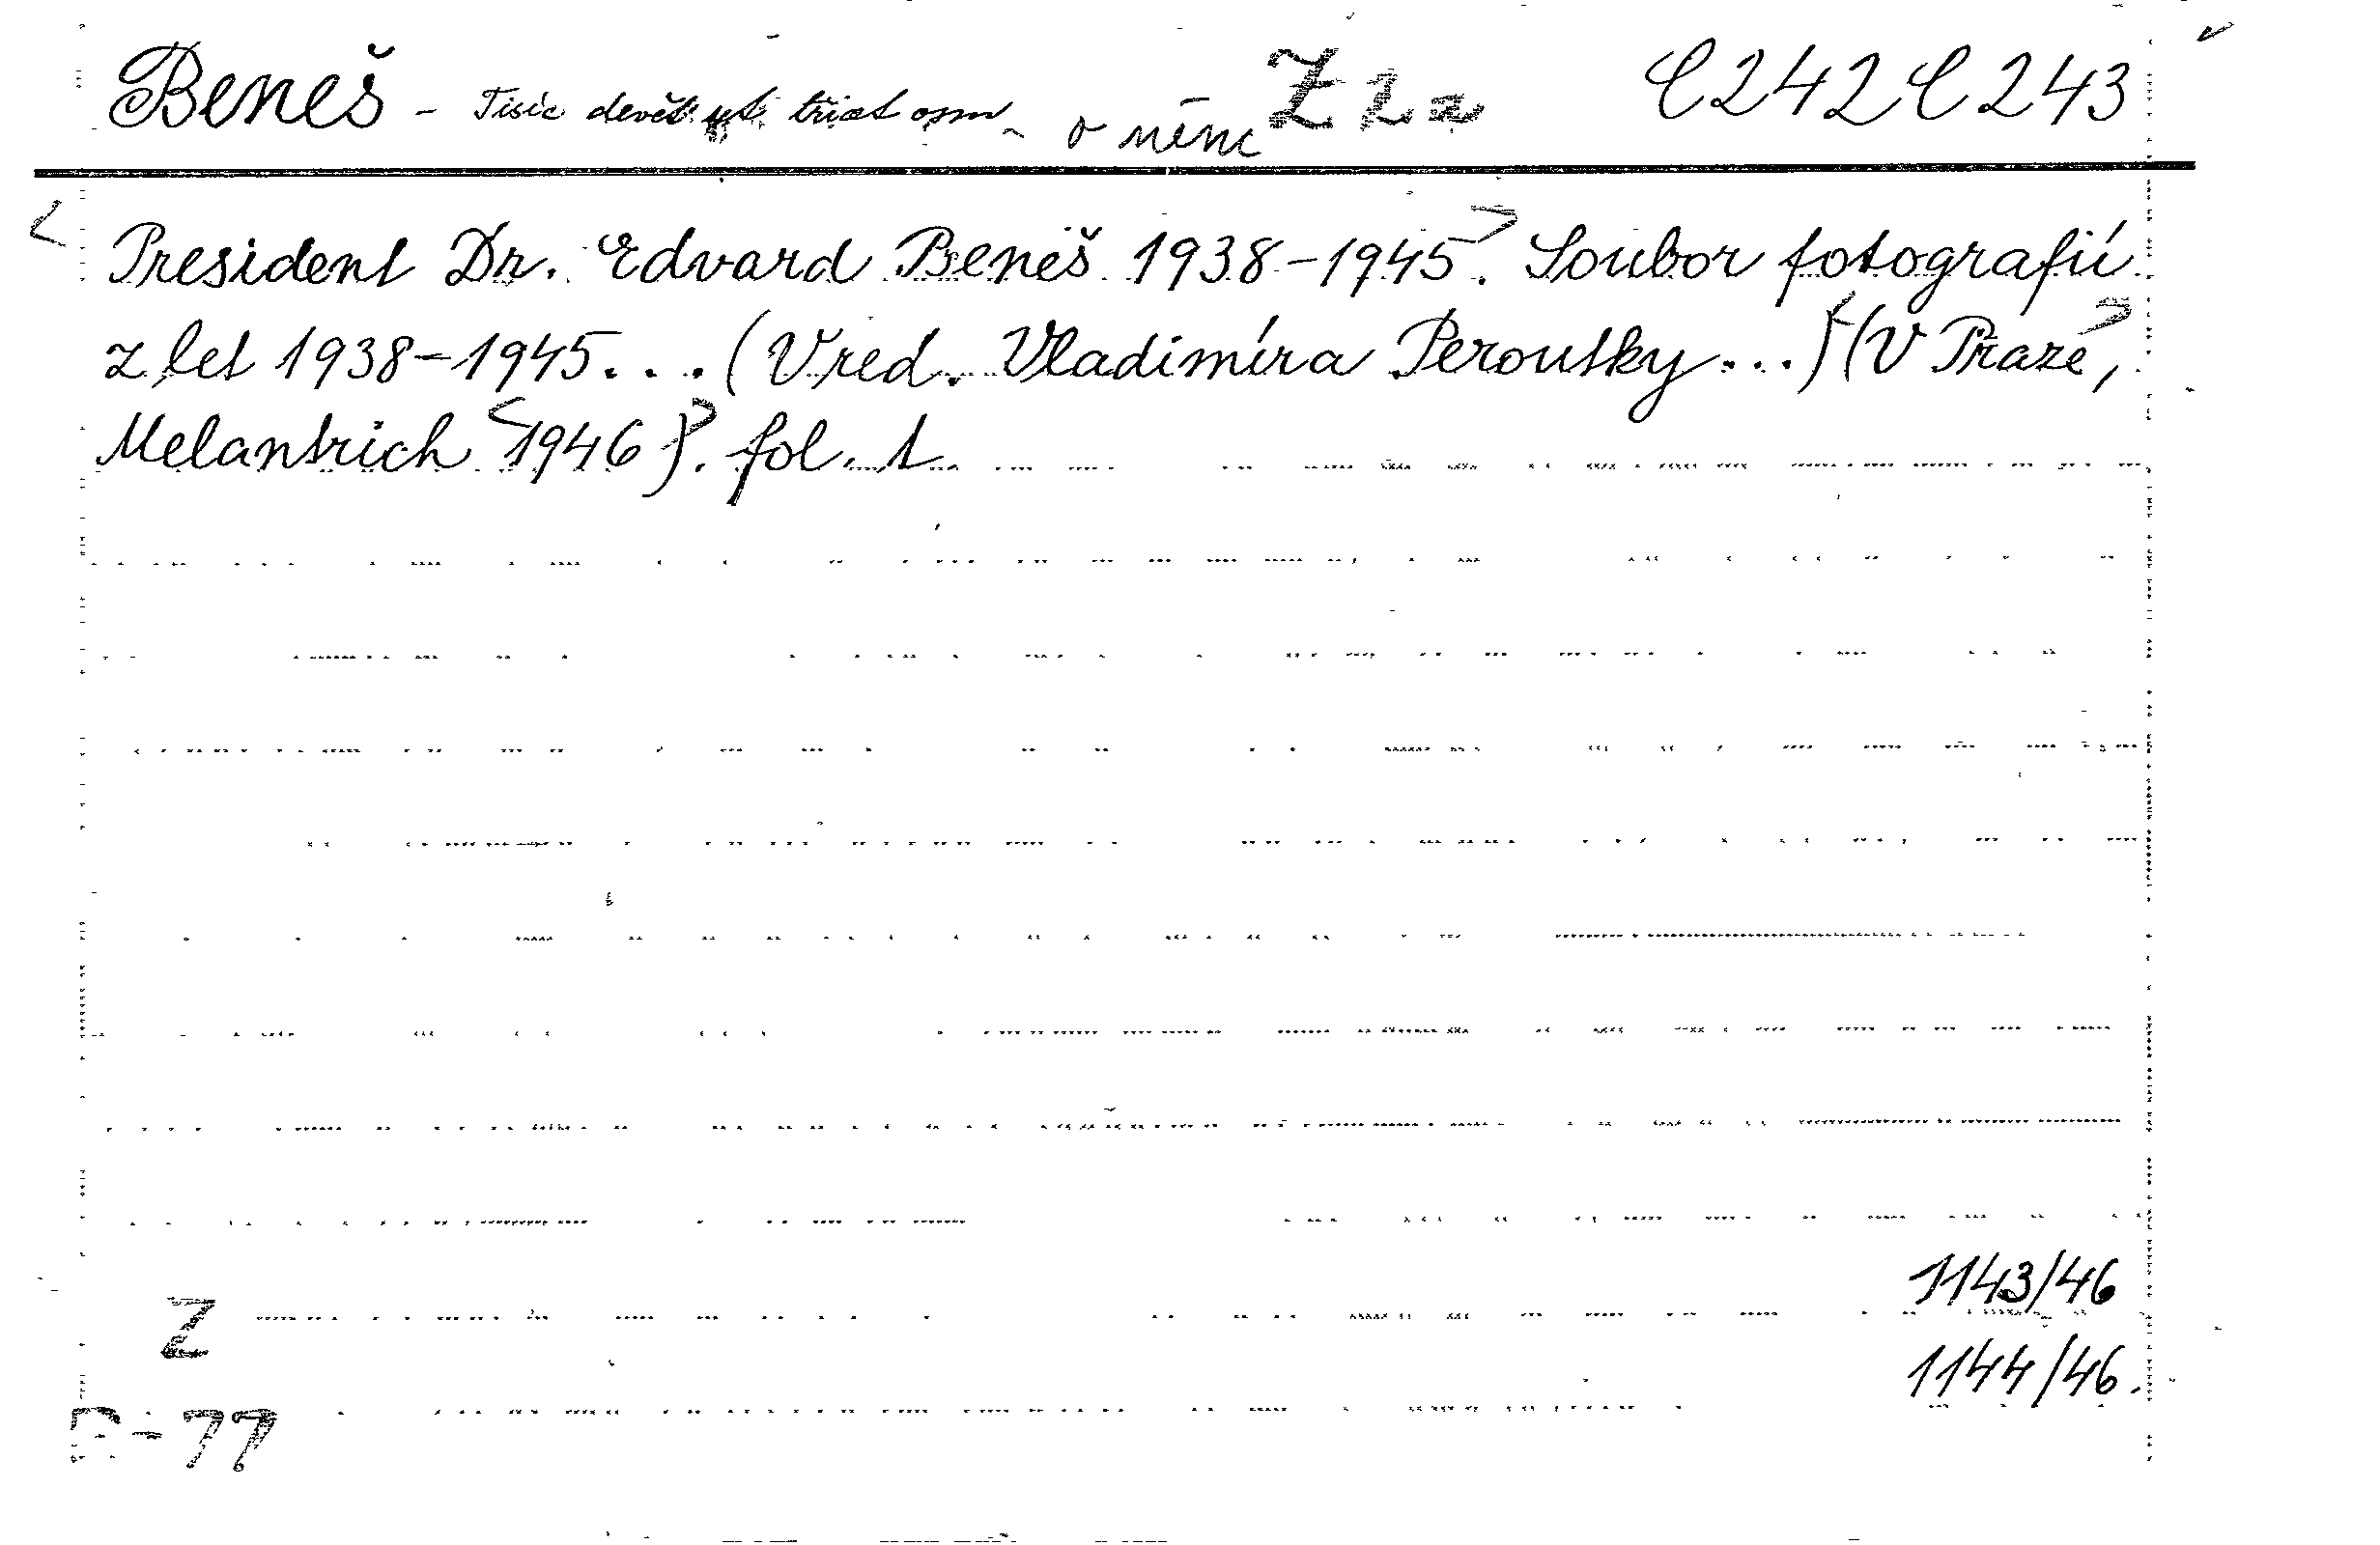 Beneš - Tisíc devět set třicet osm - o něm Z 2a C242 C243
<President Dr. Edvard Beneš 1938-1945>. Soubor fotografií
z let 1938-1945... (V red. Vladimíra Peroutky...) (V Praze,
Melantrich <1946>). fol. 1
1143/46
Z
1144/46.
-77